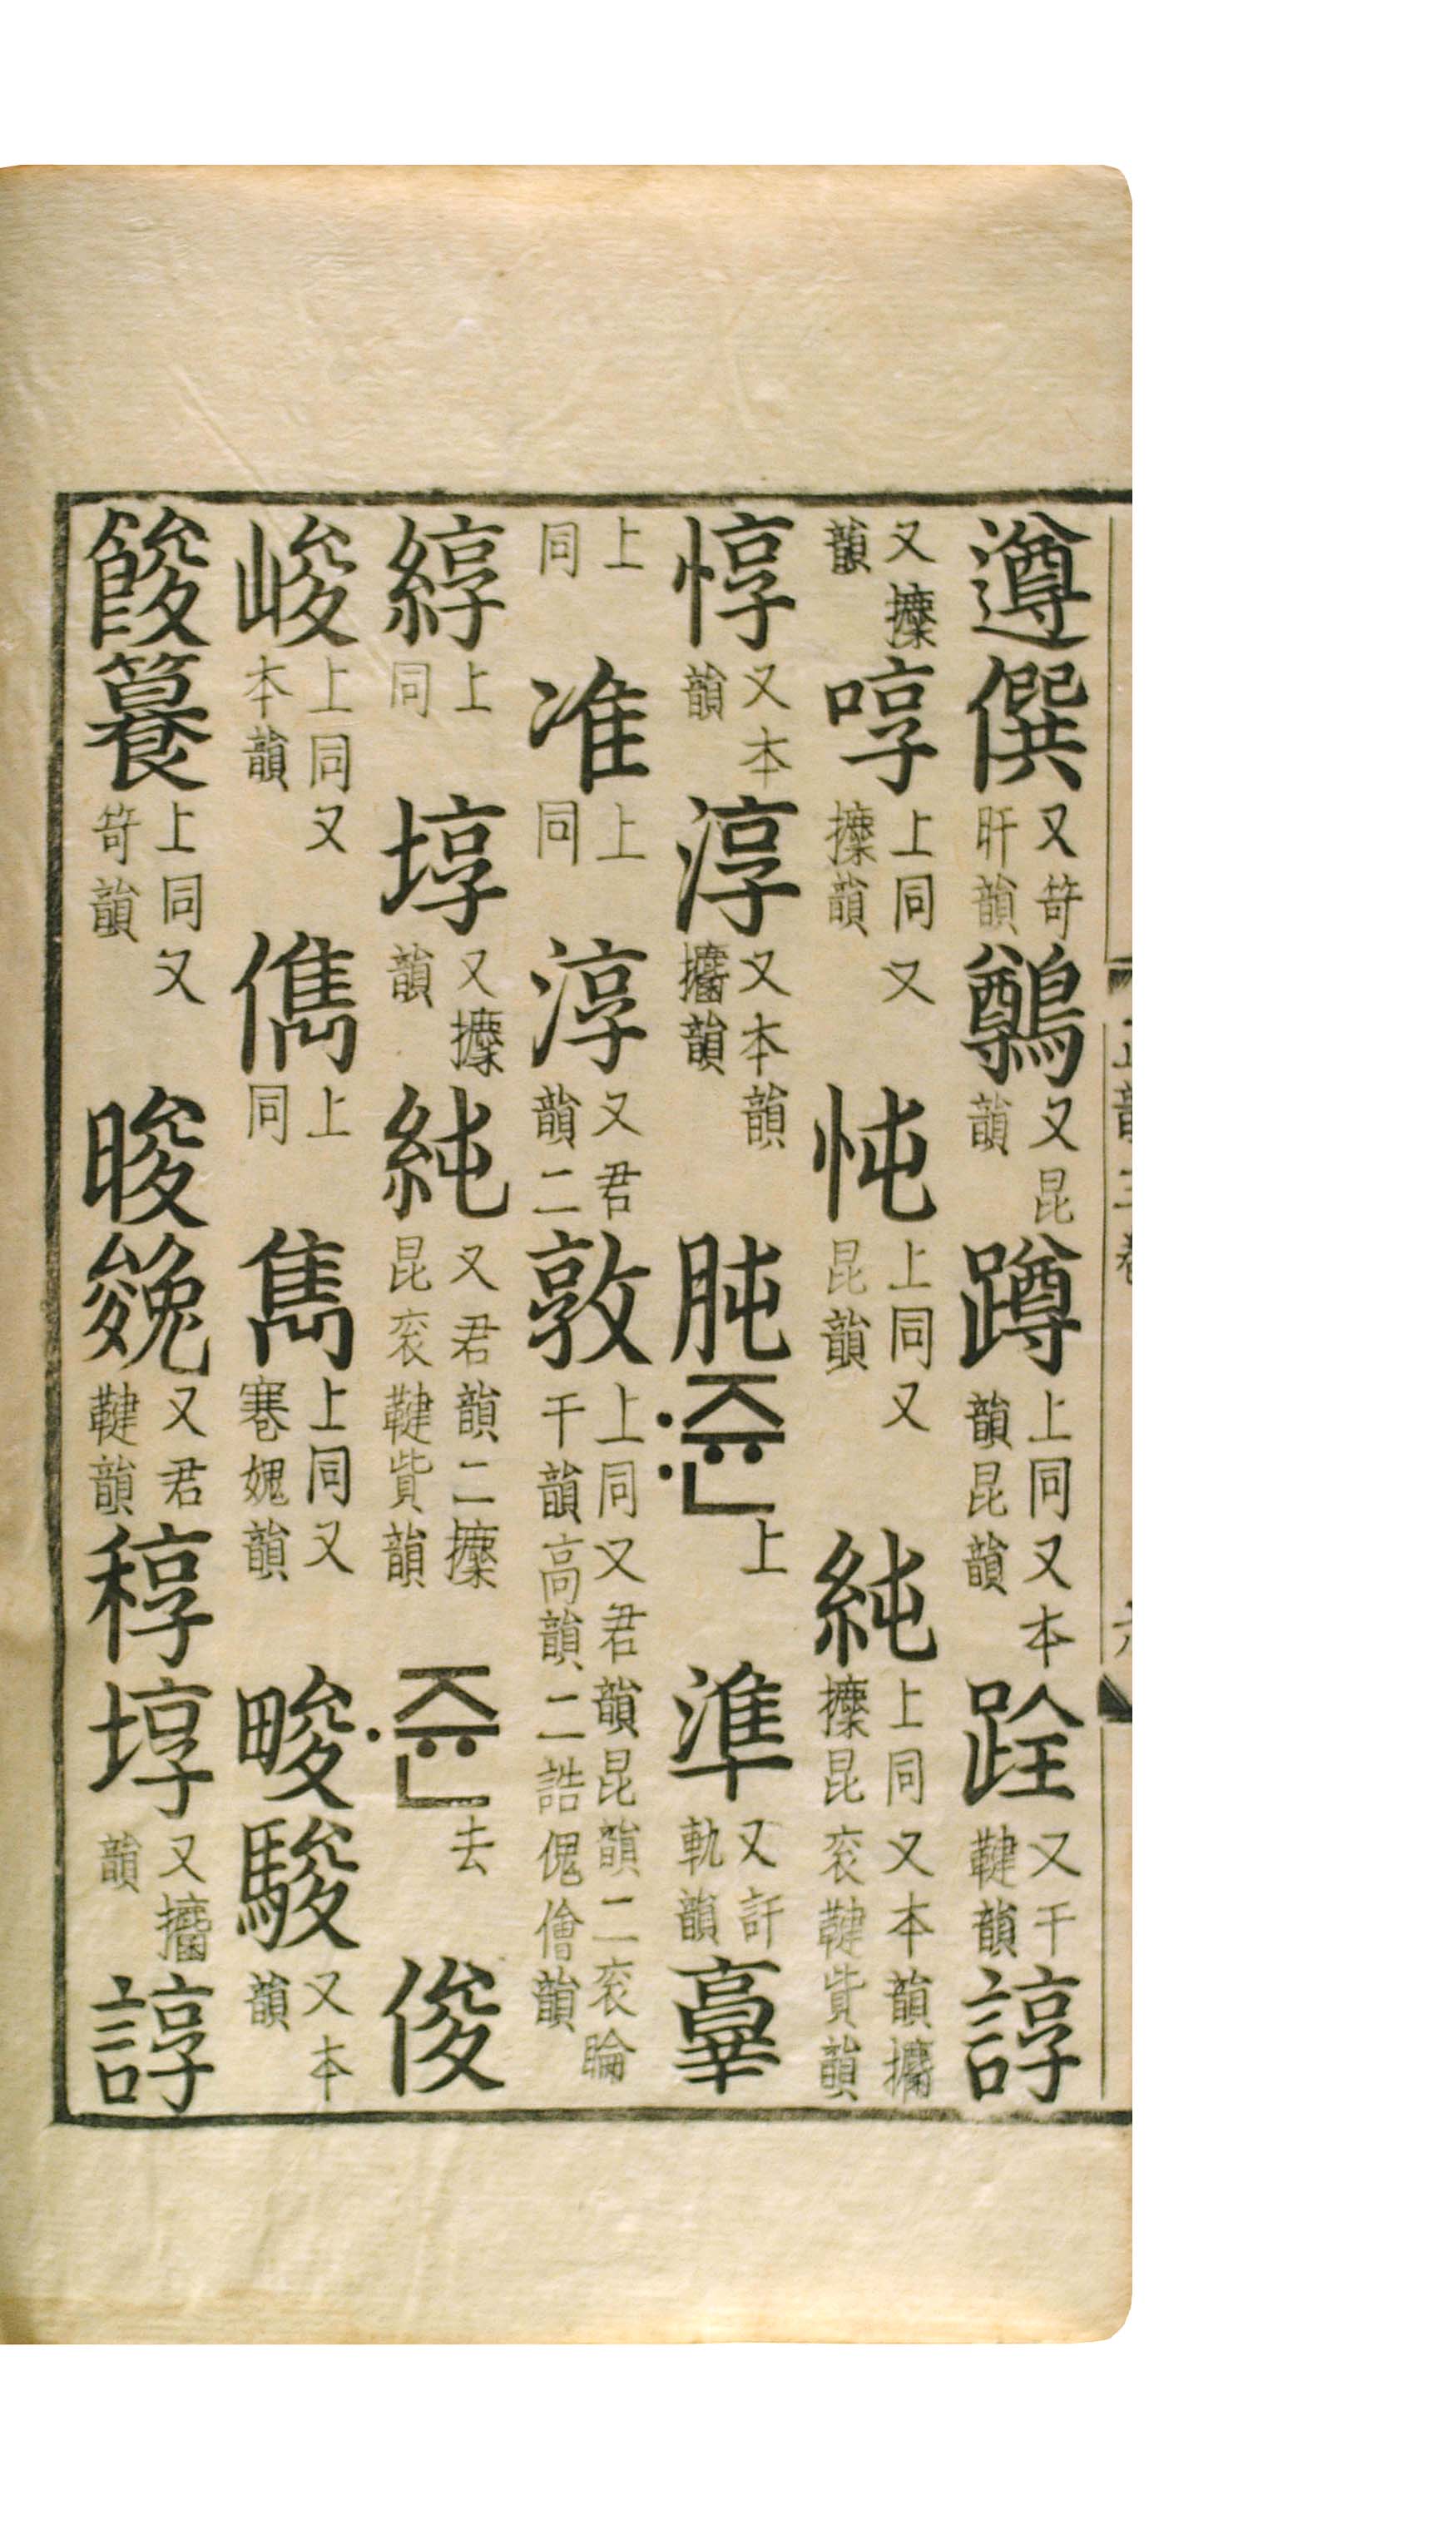 遵僎又笴肝韻鷷又昆韻蹲上同又本韻昆韻跧又干鞬韻諄
又攈韻啍上同又攈韻忳上同又昆韻純上同又本韻攟攈昆衮鞬貲韻
惇又本韻淳又本韻攟韻肫쥰上準又訐軌韻𦎧
上同准上同淳又君韻二敦上同又君韻昆韻二衮睔干韻高韻二誥傀儈韻
綧上同埻又攈韻純又君韻二攈昆衮鞬貲韻쥰去俊
峻上同又本韻儁上同雋上同又寋媿韻畯駿又本韻
餕籑上同又笴韻晙㕙又君鞬韻稕埻又攟韻諄